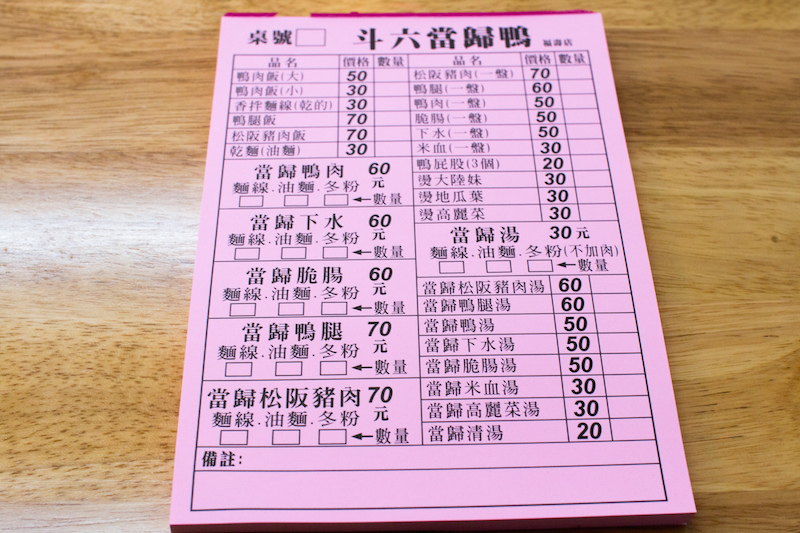 桌號 斗六當歸鴨 福壽店
品名 價格 數量
鴨肉飯(大) 50
鴨肉飯(小) 30
香拌麵線(乾的) 30
鴨腿飯 70
松阪豬肉飯 70
乾麵(油麵) 30
當歸鴨肉 60元
麵線.油麵.冬粉
←數量
當歸下水 60元
麵線.油麵.冬粉
←數量
當歸脆腸 60元
麵線.油麵.冬粉
←數量
當歸鴨腿 70元
麵線.油麵.冬粉
←數量
當歸松阪豬肉 70元
麵線.油麵.冬粉
←數量
品名 價格 數量
松阪豬肉(一盤) 70
鴨腿(一盤) 60
鴨肉(一盤) 50
脆腸(一盤) 50
下水(一盤) 50
米血(一盤) 30
鴨屁股(3個) 20
燙大陸妹 30
燙地瓜葉 30
燙高麗菜 30
當歸湯 30元
麵線.油麵.冬粉(不加肉)
←數量
當歸松阪豬肉湯 60
當歸鴨腿湯 60
當歸鴨湯 50
當歸下水湯 50
當歸脆腸湯 50
當歸米血湯 30
當歸高麗菜湯 30
當歸清湯 20
備註: